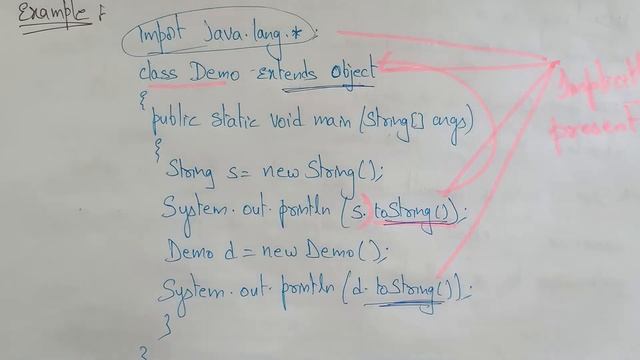 Example :
Import java.lang.*;
class Demo extends Object
{
public static void main (String[] args)
{
String s = new String();
System.out.println (s.toString());
Demo d = new Demo();
System.out.println (d.toString());
}
}
Implicitly
present